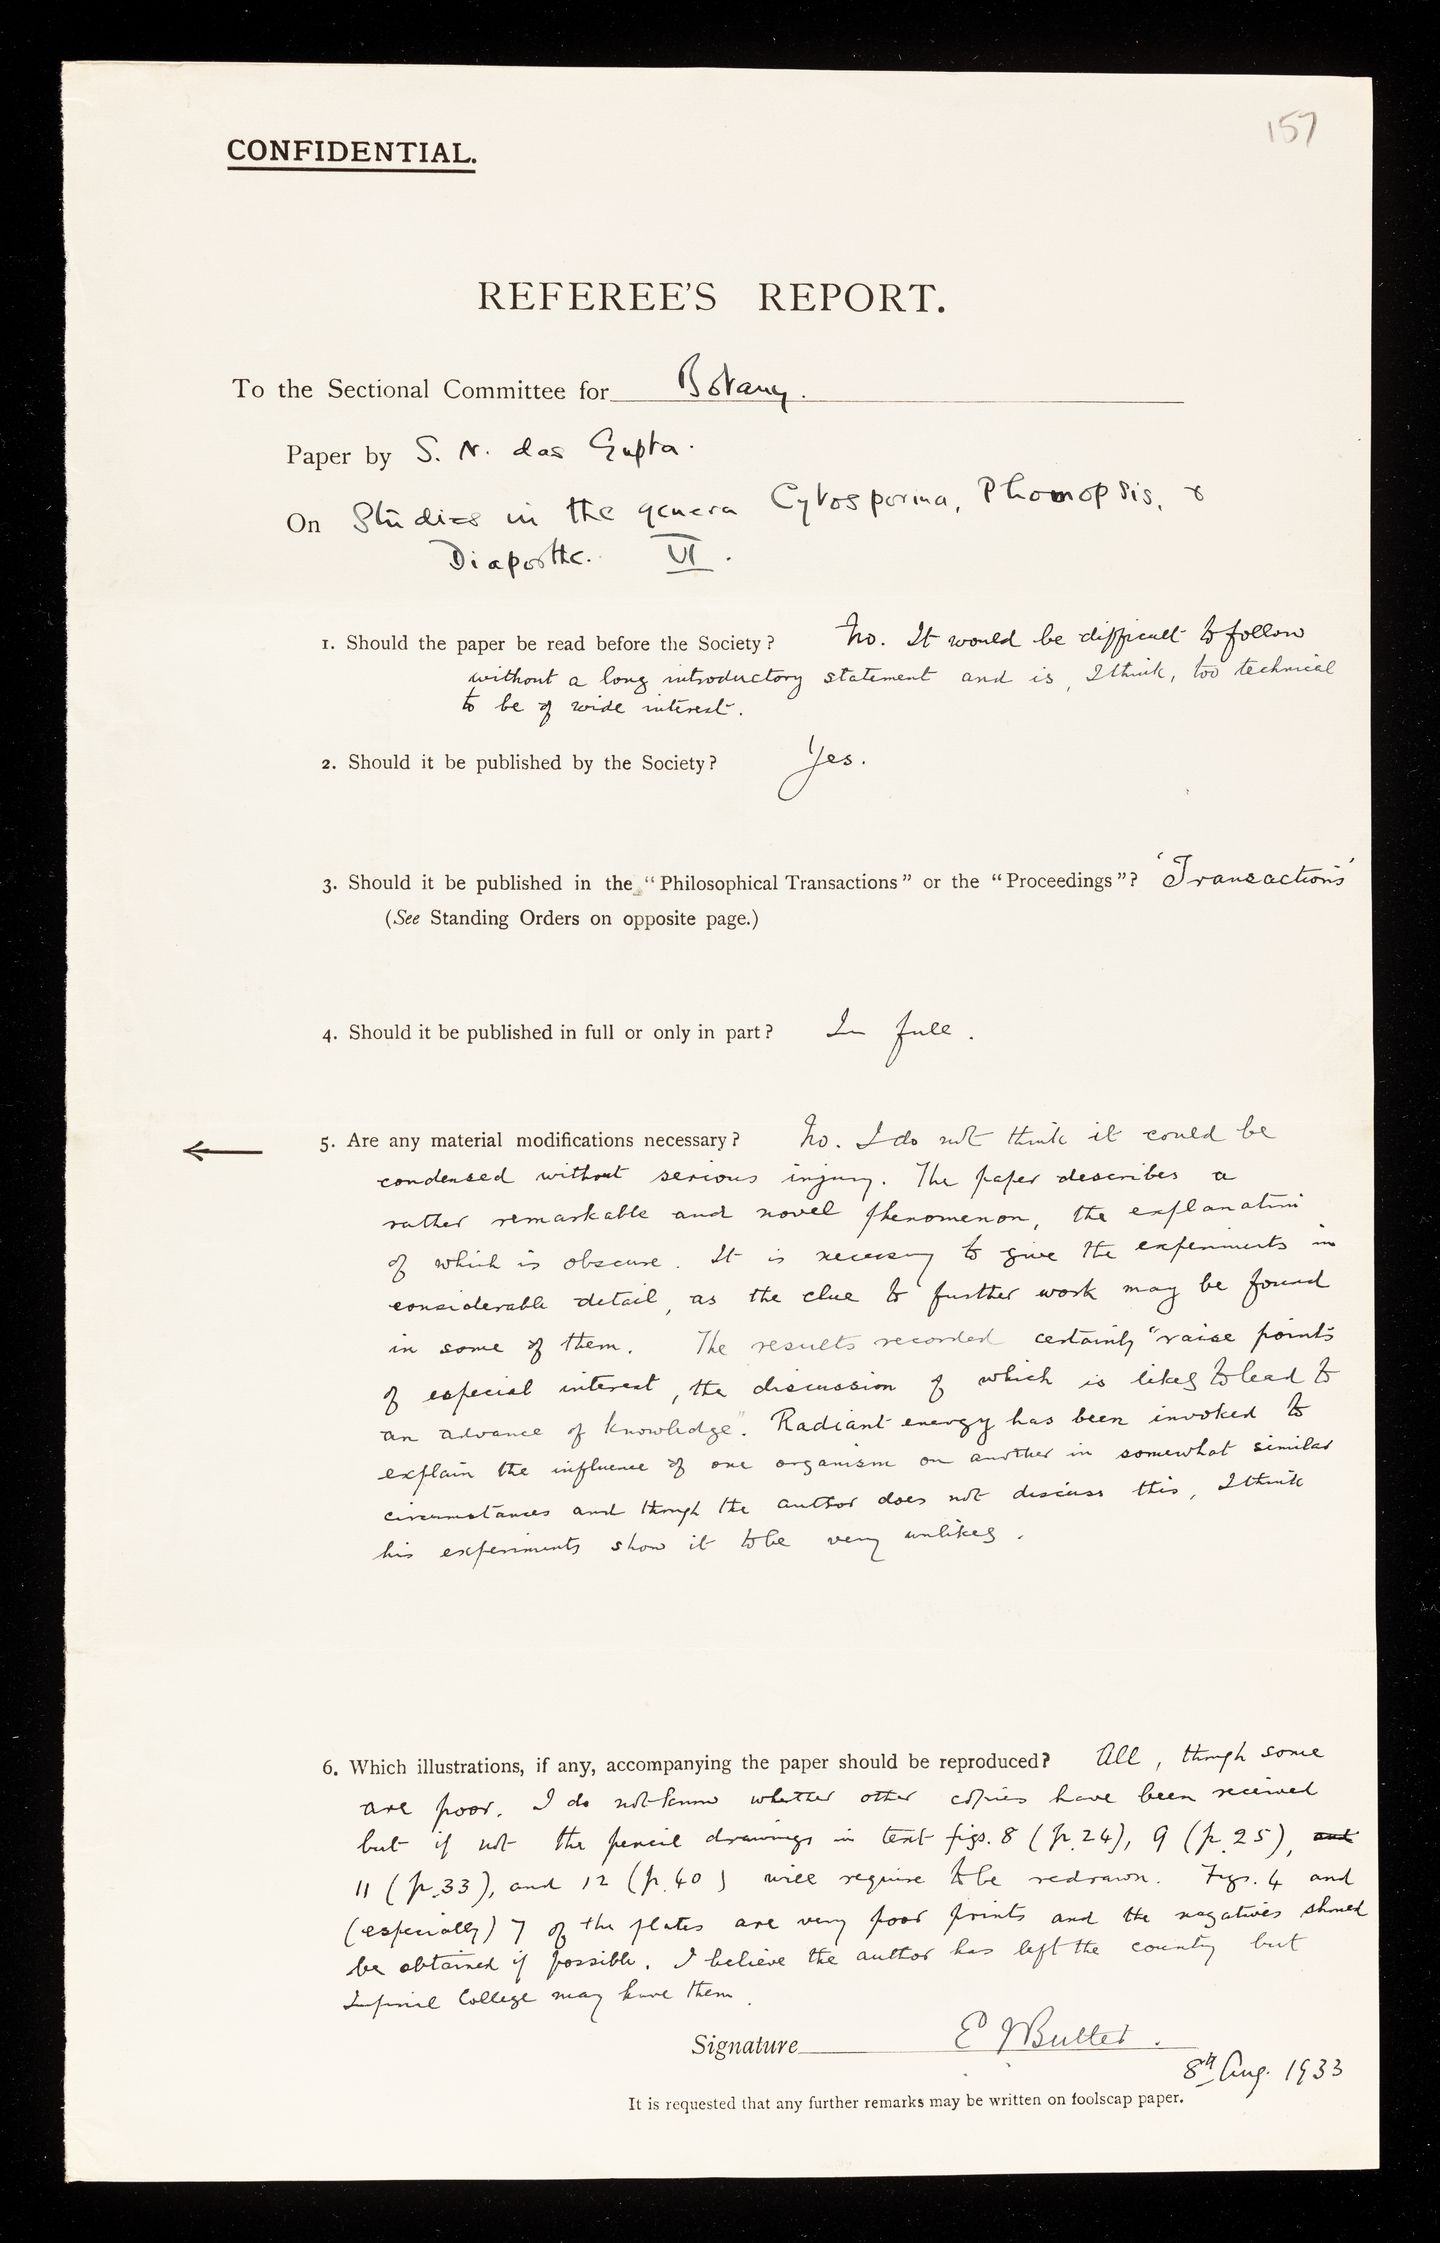 157
CONFIDENTIAL.
REFEREE'S REPORT.
To the Sectional Committee for Botany.
Paper by S. N. das Gupta.
On Studies in the genera Cytosporina, Phomopsis, &
Diaporthe. VI.
1. Should the paper be read before the Society? No. It would be difficult to follow
without a long introductory statement and is, I think, too technical
to be of wide interest.
2. Should it be published by the Society? Yes.
3. Should it be published in the "Philosophical Transactions" or the "Proceedings"? 'Transactions'
(See Standing Orders on opposite page.)
4. Should it be published in full or only in part? In full.
5. Are any material modifications necessary? No. I do not think it could be
condensed without serious injury. The paper describes a
rather remarkable and novel phenomenon, the explanation
of which is obscure. It is necessary to give the experiments in
considerable detail, as the clue to further work may be found
in some of them. The results recorded certainly "raise points
of especial interest, the discussion of which is likely to lead to
an advance of knowledge". Radiant energy has been invoked to
explain the influence of one organism on another in somewhat similar
circumstances and though the author does not discuss this, I think
his experiments show it to be very unlikely.
6. Which illustrations, if any, accompanying the paper should be reproduced? All, though some
are poor. I do not know whether other copies have been received
but if not the pencil drawings in text figs. 8 (p. 24), 9 (p. 25), and
11 (p. 33), and 12 (p. 40) will require to be redrawn. Figs. 4 and
(especially) 7 of the plates are very poor prints and the negatives should
be obtained if possible. I believe the author has left the country but
Imperial College may have them.
Signature E J Butler.
8th Aug. 1933
It is requested that any further remarks may be written on foolscap paper.